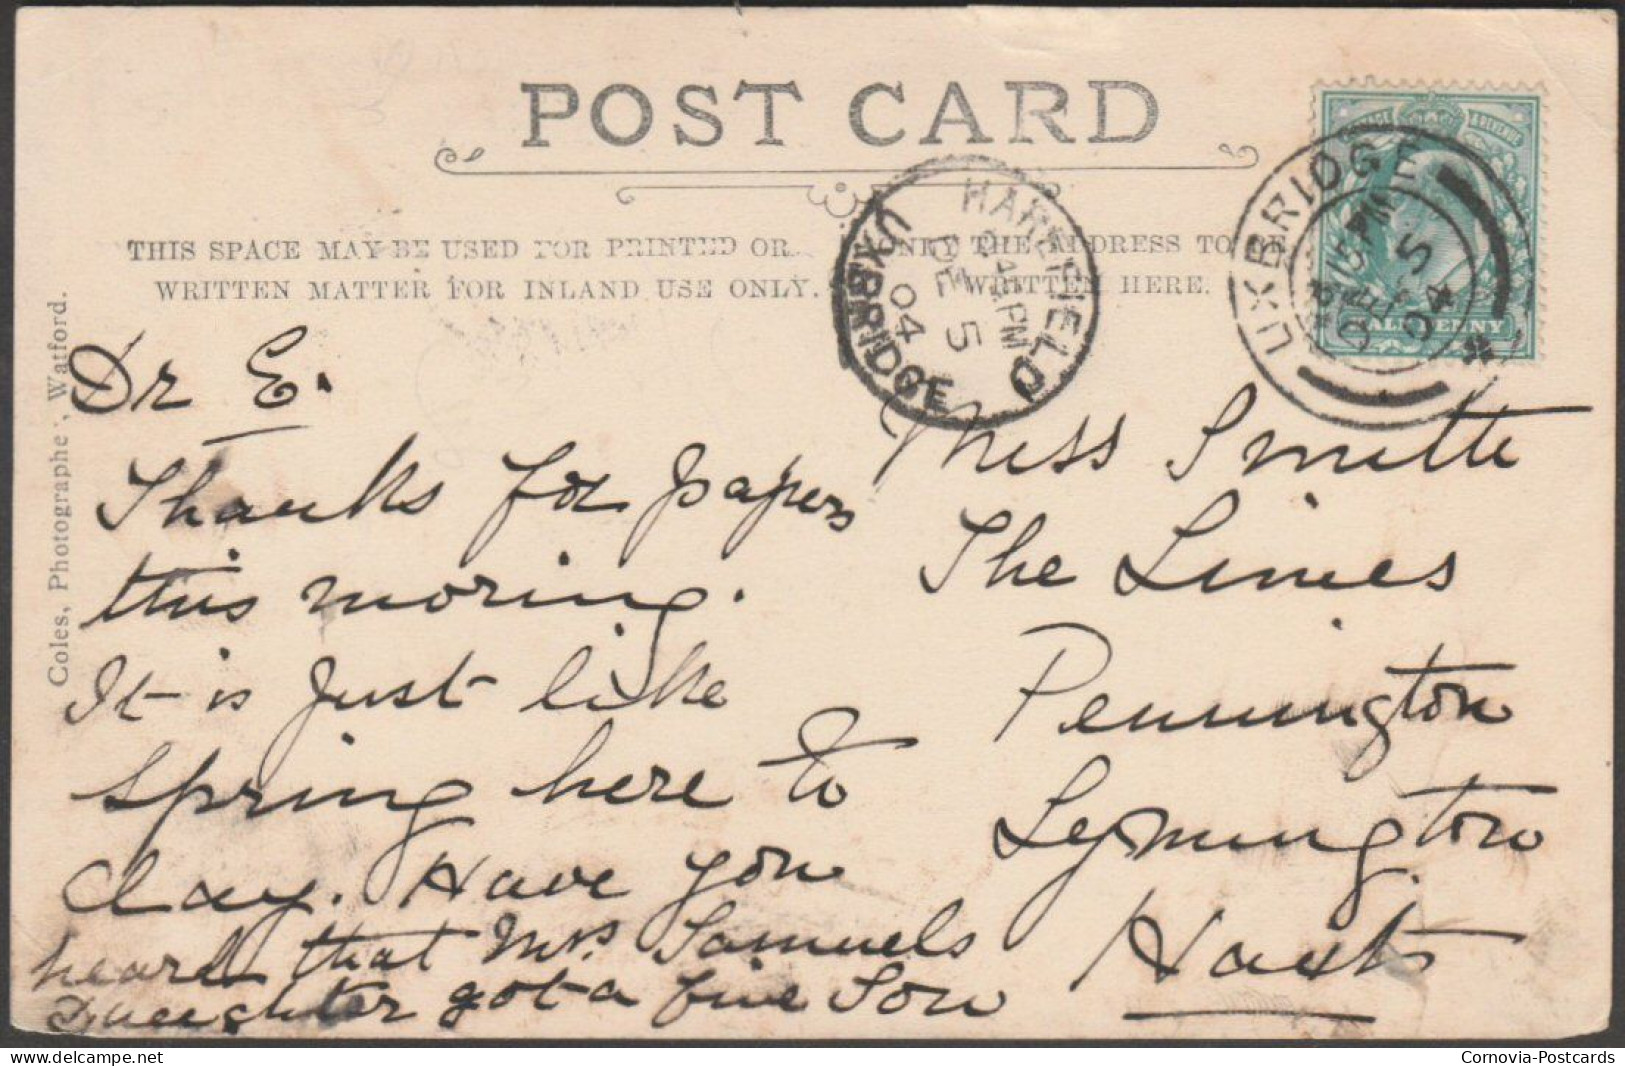 POST CARD
THIS SPACE MAY BE USED FOR PRINTED OR
WRITTEN MATTER FOR INLAND USE ONLY.
ONLY THE ADDRESS TO BE
WRITTEN HERE.
HALFPENNY
UXBRIDGE
PM
DE 5
04
HAREFIELD
UXBRIDGE
PM
DE 5
04
Coles, Photographer, Watford.
Dr E.
Thanks for papers
this moring.
It is just like
spring here to
day. Have you
heard that Mrs Samuels
Daughter got a fine Son
Miss Smith
The Limes
Pennington
Lymington
Hants
Cornovia-Postcards